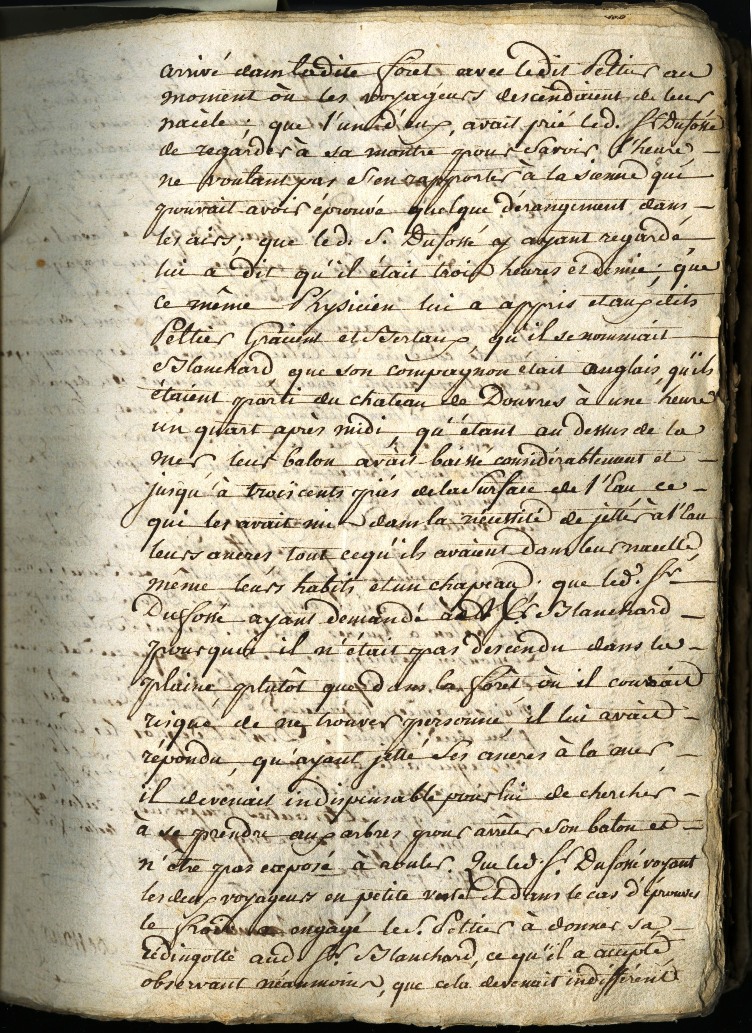 arrivé dans ladite forêt avec ledit Peltier au
moment où les voyageurs descendaient de leur
nacèle; que l'un d'eux, avait prié led. Sr Dufossé
de regarder à sa montre pour savoir l'heure
ne voulant pas s'en rapporter à la sienne qui
pouvait avoir éprouvé quelque dérangement dans
les airs; que led. S. Dufossé y ayant regardé,
lui a dit qu'il était trois heures et demie; que
ce même Physicien lui a appris et auxdits
Peltier Gracient et Berlaux, qu'il se nommait
Blanchard que son compagnon était anglais qu'ils
étaient parti du chateau de Douvres à une heure
un quart après midi, qu'étant au dessus de la
mer leur balon avait baissé considérablement et
jusqu'à trois cents piés de la surface de l'Eau ce
qui les avait mis dans la nécessité de jetter à l'Eau
leurs ancres tout ce qu'ils avaient dans leur nacelle
même leurs habits et un chapeau; que led. Sr
Dufossé ayant demandé Sr Blanchard
pourquoi il n'était pas descendu dans la
plaine plutôt que dans la forêt où il courait
risque de ne trouver personne il lui avait
répondu, qu'ayant jetté ses ancres à la mer
il devenait indispensable pour lui de chercher
à se prendre aux arbres pour arrêter son balon et
n'être pas exposé à rouler, que led. Sr Dufossé voyant
les deux voyageurs en petite veste et dans le cas d'éprouver
le froid a engagé le S. Peltier à donner sa
redingotte aud. Sr Blanchard, ce qu'il a accepté
observant néanmoins, que cela devenait indifférent